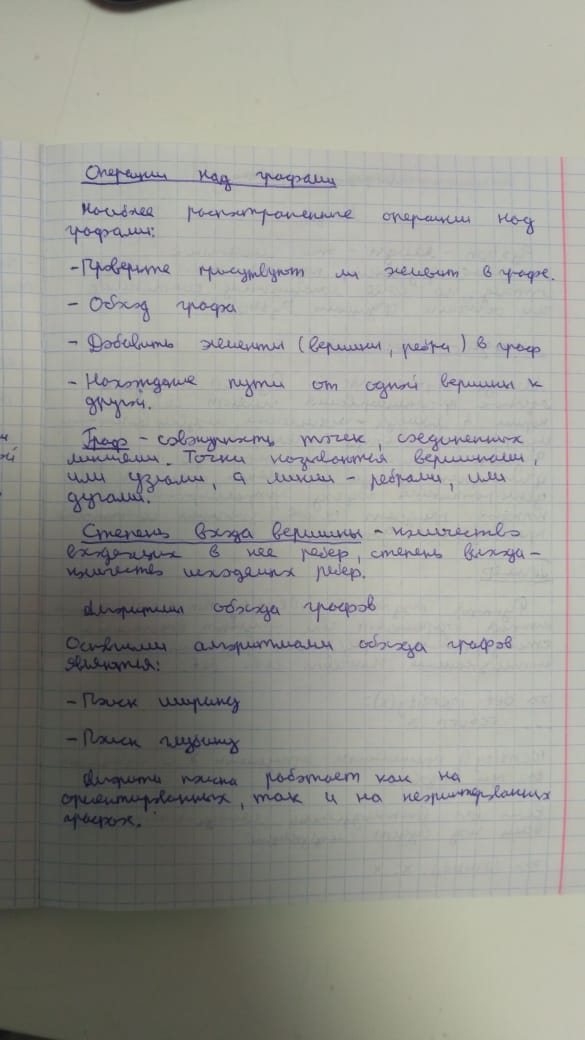 Операции над графами
Наиболее распространенные операции над
графами:
- Проверить присутвуют ли элемент в графе.
- Обход графа
- Добавить элементы (вершины, ребра) в граф
- Нахождение пути от одной вершины к
другой.
Граф - совокупность точек, соединенных
линиями. Точки называются вершинами,
или узлами, а линии - ребрами, или
дугами.
Степень входа вершины - количество
входящих в нее ребер, степень выхода -
количество исходящих ребер.
Алгоритмы обхода графов
Основными алгоритмами обхода графов
являются:
- Поиск ширину
- Поиск глубину
Алгоритм поиска работает как на
ориентированных, так и на неориентированных
графах.